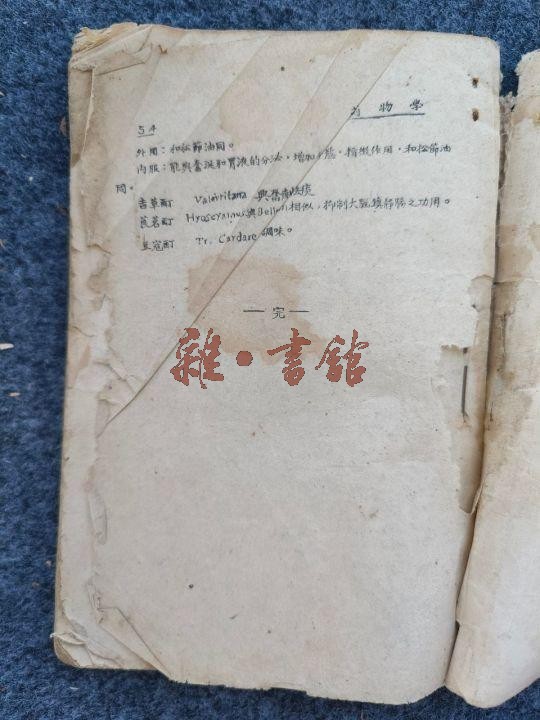 54
药物学
外用：和松節油同。
内服：能興奮涎和胃液的分泌，增加 作用，和松節油
同。
吉草酊 Valeriana 興奮祛痰
莨菪酊 Hyoscyamus與Bellad相似，抑制大腕鎮静腸之功用。
豆蔻酊 Tr. Cardare 調味。
— 完 —
雜·書館